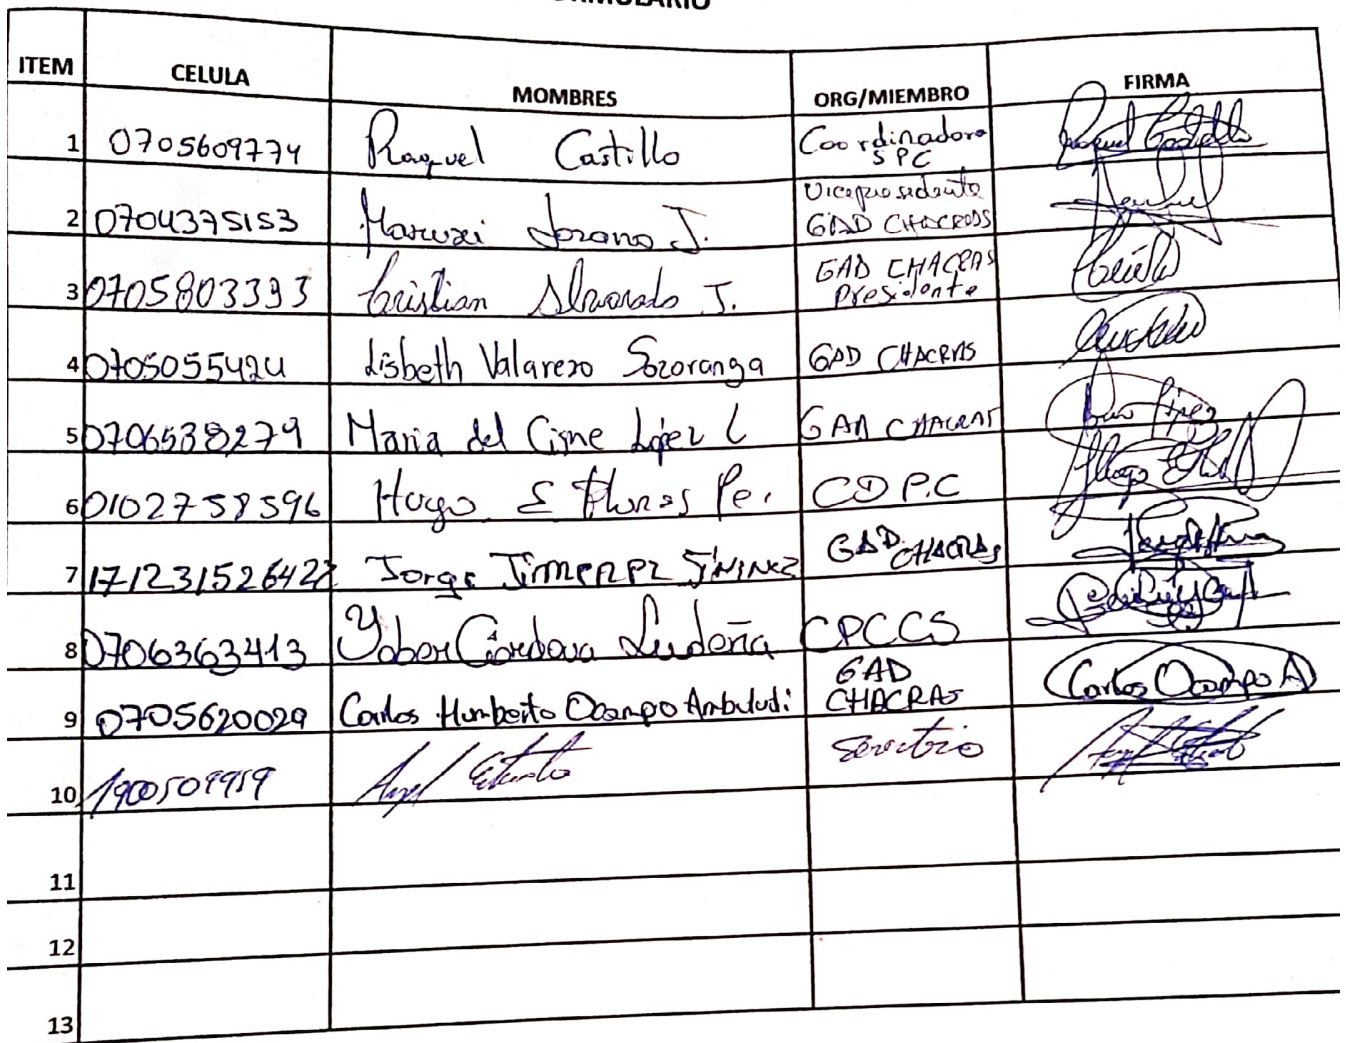 ITEM CELULA MOMBRES ORG/MIEMBRO FIRMA
1 0705609774 Raquel Castillo Coordinadora SPC Raquel Castillo
2 0704375153 Maruxi Lozano J. Vicepresidenta GAD CHACRAS
3 0705803393 Cristian Alvarado J. GAD CHACRAS Presidente
4 0705055424 Lisbeth Valarezo Sozoranga GAD CHACRAS
5 0706538279 Maria del Cisne López L GAD CHACRAS
6 0102758596 Hugo E Flores Pe. CD P.C
7 171231526422 Jorge Jimenez Jiminez GAD CHACRAS
8 0706363413 Yober Córdova Ludeña CPCCS
9 0705620029 Carlos Humberto Ocampo Ambuludi GAD CHACRAS Carlos Ocampo A
10 1900509959 Angel
11
12
13